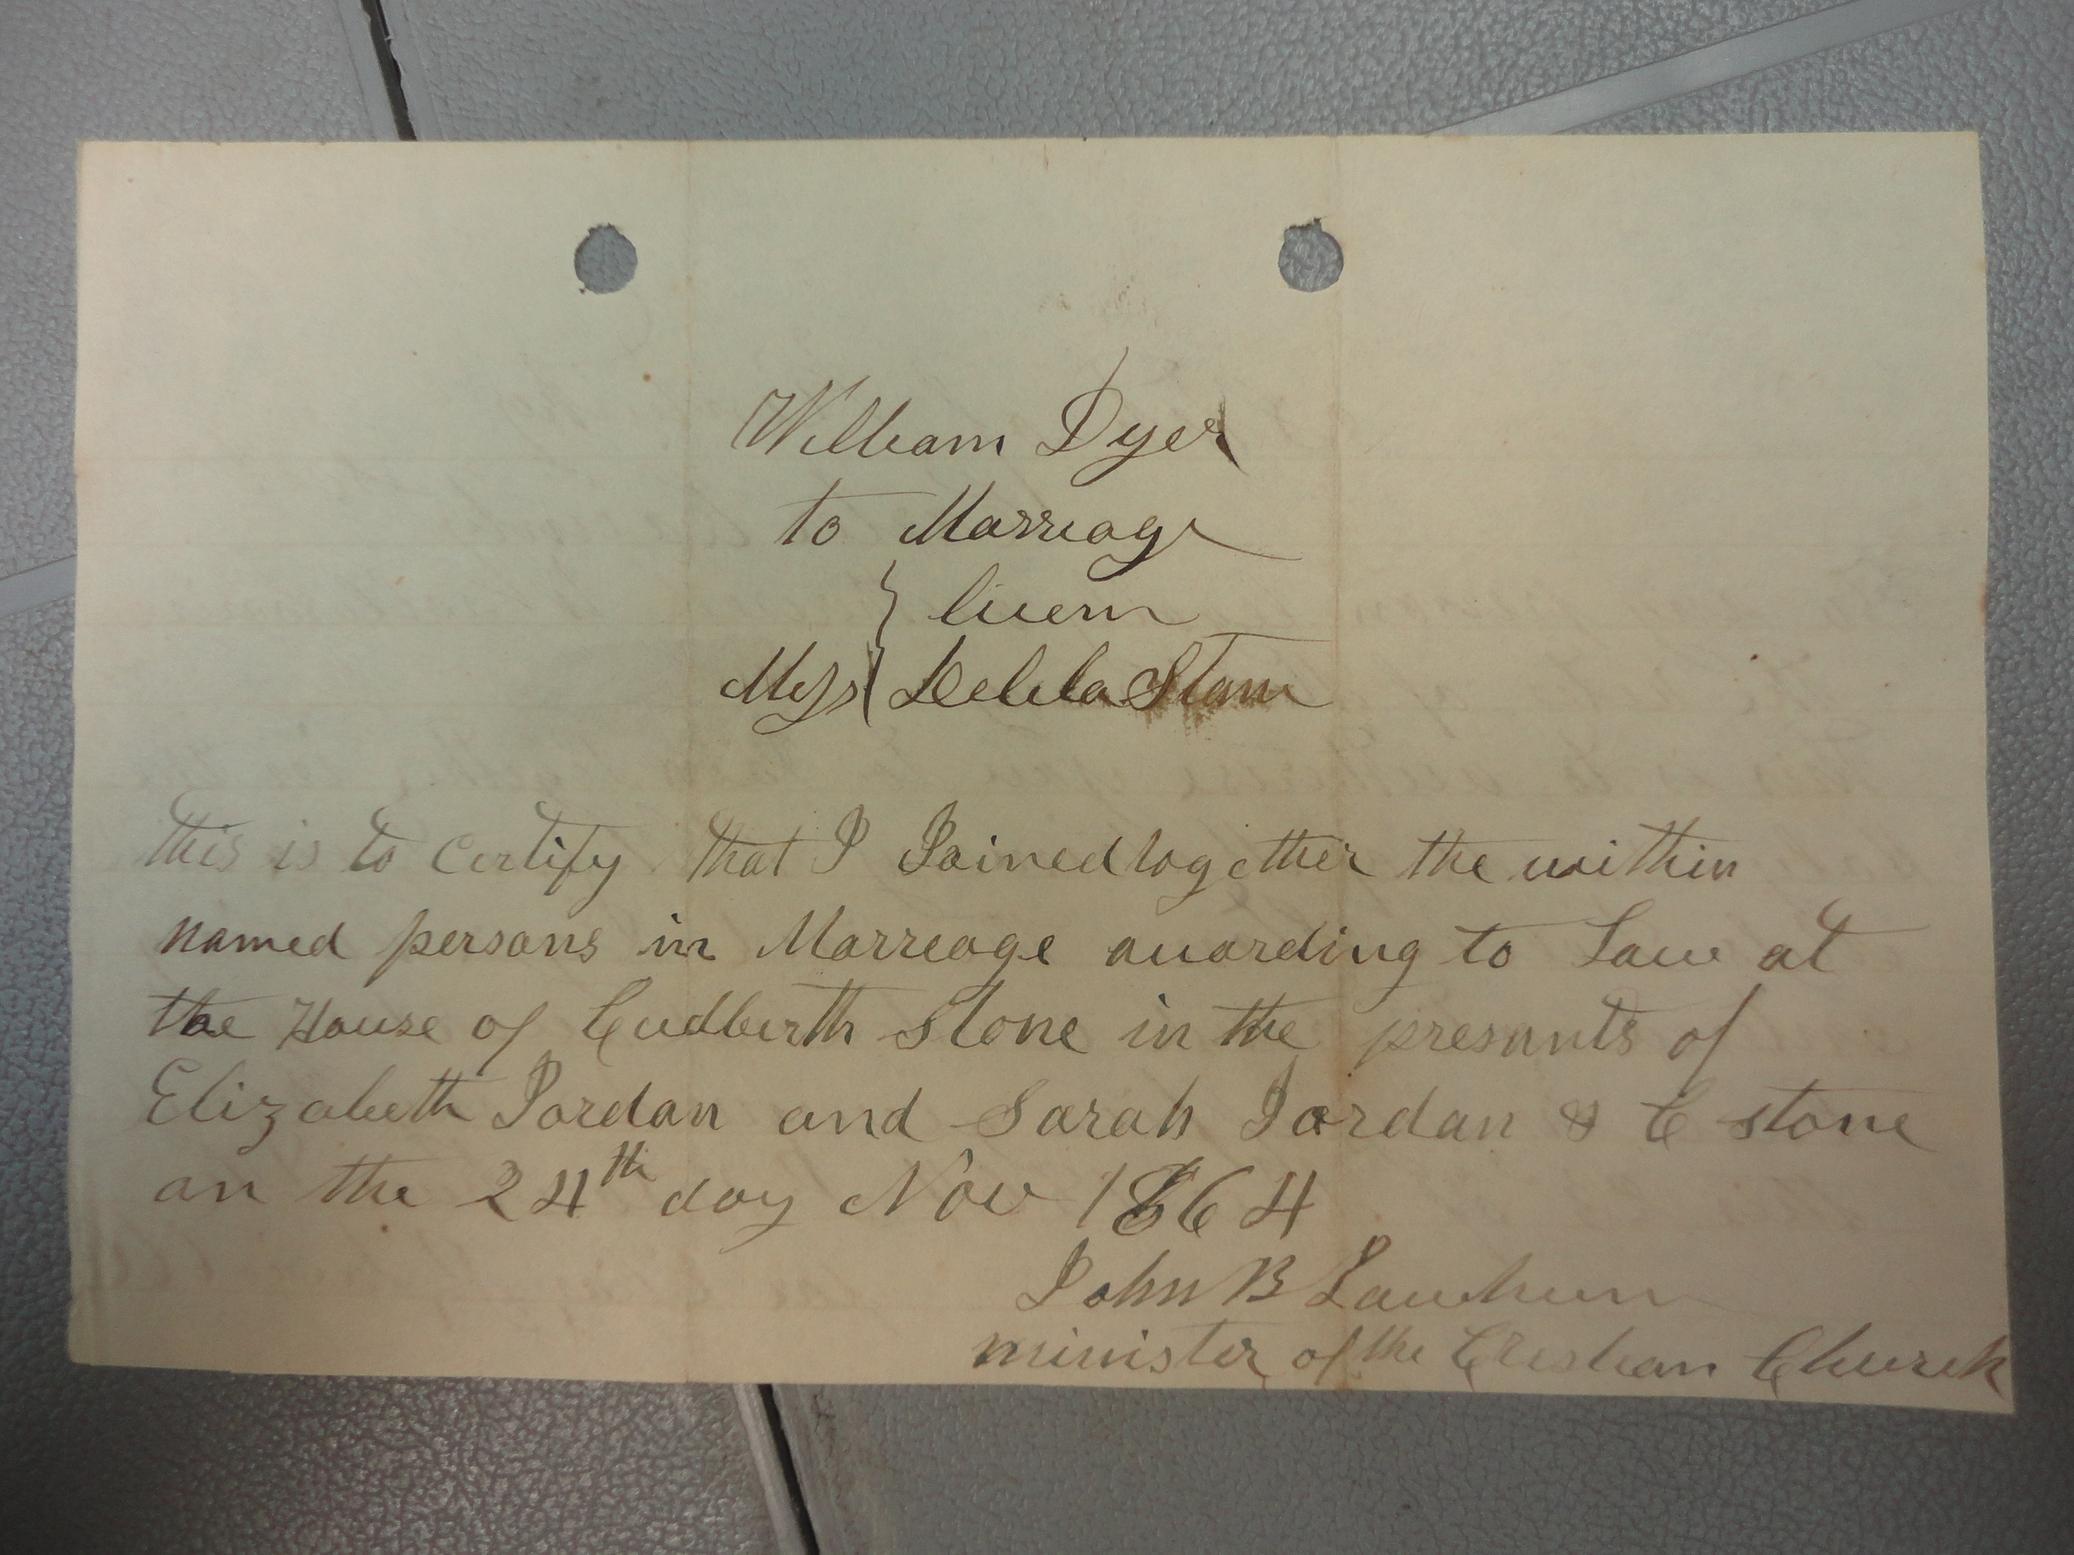 William Dyer
to Marreage
} licern
Miss { Delila Stone
this is to certify that I Joined together the within
named persons in Marreage acording to Law at
the House of Cudberth Stone in the presunts of
Elizabeth Jordan and Sarah Jordan & C stone
on the 24th day Nov 1864
John B Lawhun
minister of the Cristian Church